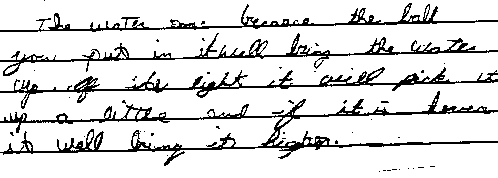 The water one because the ball
you put in it will bring the water
up. If its light it will pick it
up a little and if it is heavier
it will bring it higher.